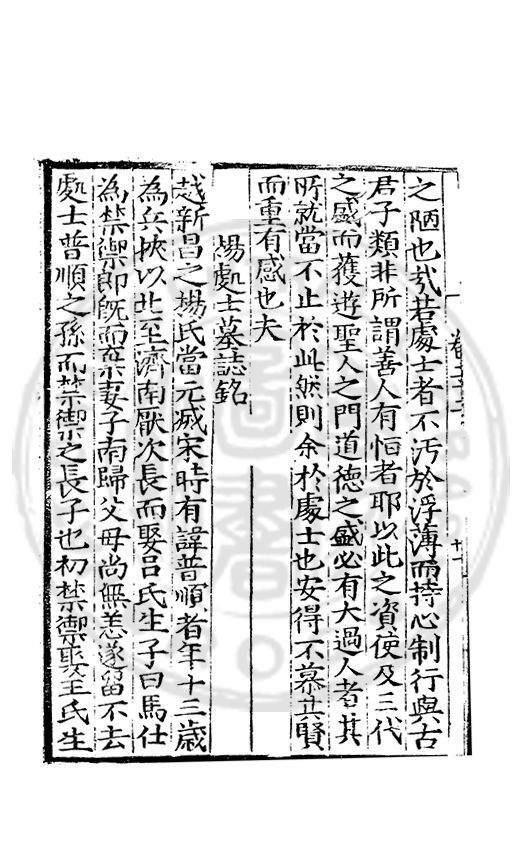 之陋也哉若處士者不汚於浮薄而持心制行與古
君子類非所謂善人有恒者耶以此之資使及三代
之盛而獲遊聖人之門道德之盛必有大過人者其
所就當不止於此然則余於處士也安得不慕其賢
而重有感也夫
楊處士墓誌銘
越新昌之楊氏當元滅宋時有諱普順者年十三歲
為兵挾以北至濟南厭次長而娶呂氏生子曰馬仕
為禁禦郎旣而棄妻子南歸父母尚無恙遂留不去
處士普順之孫而禁禦之長子也初禁禦娶王氏生